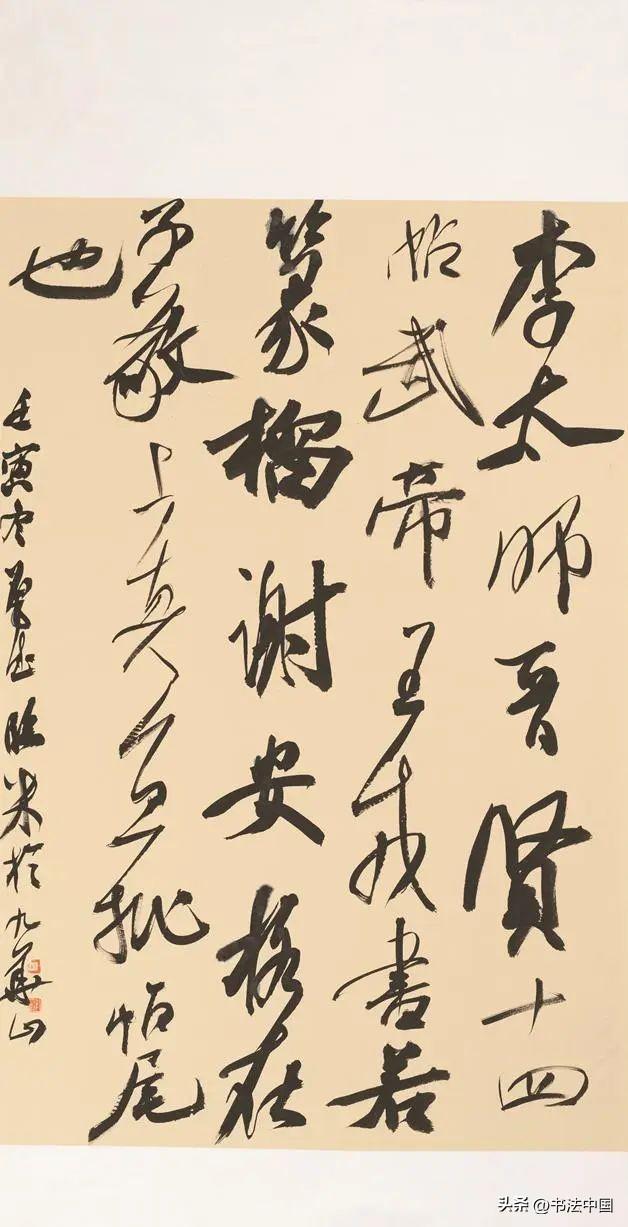 李太師晉賢十四
帖武帝王戎書若
篆籀謝安格在
子敬上真宜批帖尾
也
壬寅冬臨米於九華山
头条 @书法中国